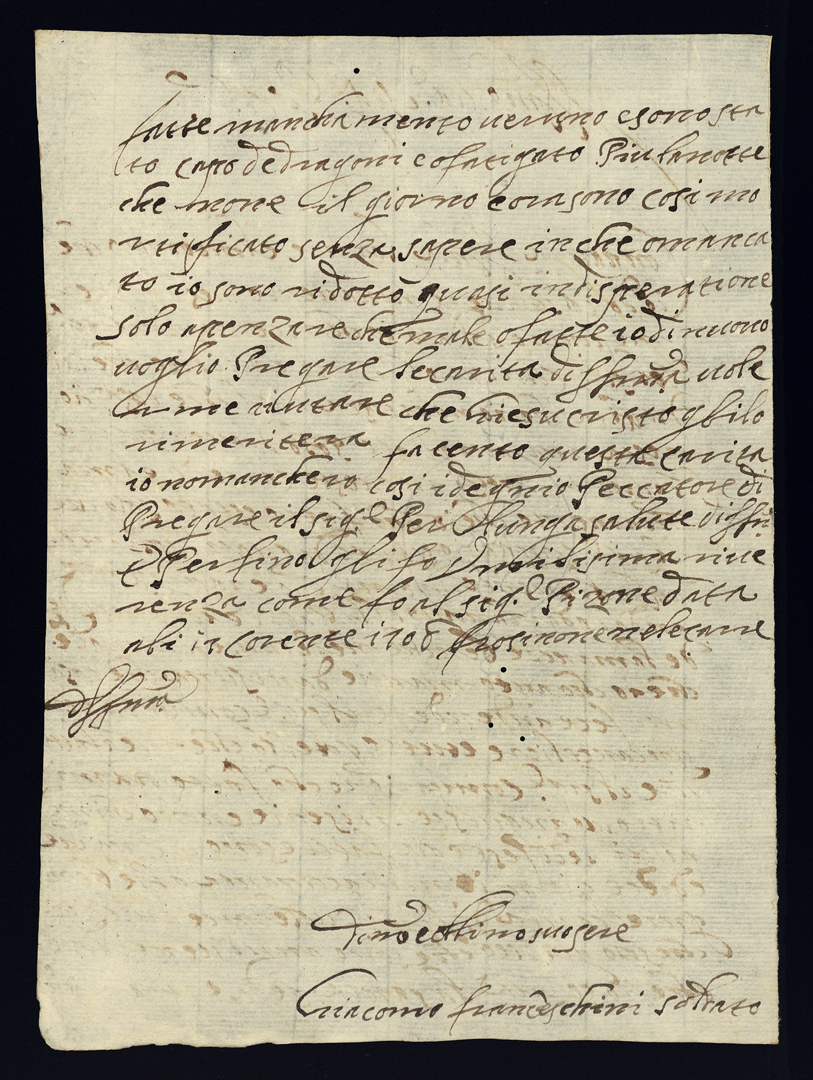 fatte manchamento veruno e sono sta
to capo de dragoni e o fatigato Piu la notte
che none il giorno e ora sono cosi mo
rtificato senza sapere in che o manca
to io sono ridotto quasi in disperatione
solo a penzare che male o fatte io di nuovo
voglio Pregare le carita di
a me aiutare che Giesu cristo glilo
rimeritera facento questa carita
io no manchero cosi idegnio Peccatore di
Pregare il sig.e Per lunga salute di
E Per fino gli fo Vmilisima rive
renza come fo al sig.e Pizone data
ali 12 corente 1708 frosinone nele carre

Di e obblino suo sere
Giacomo franceschini soldato